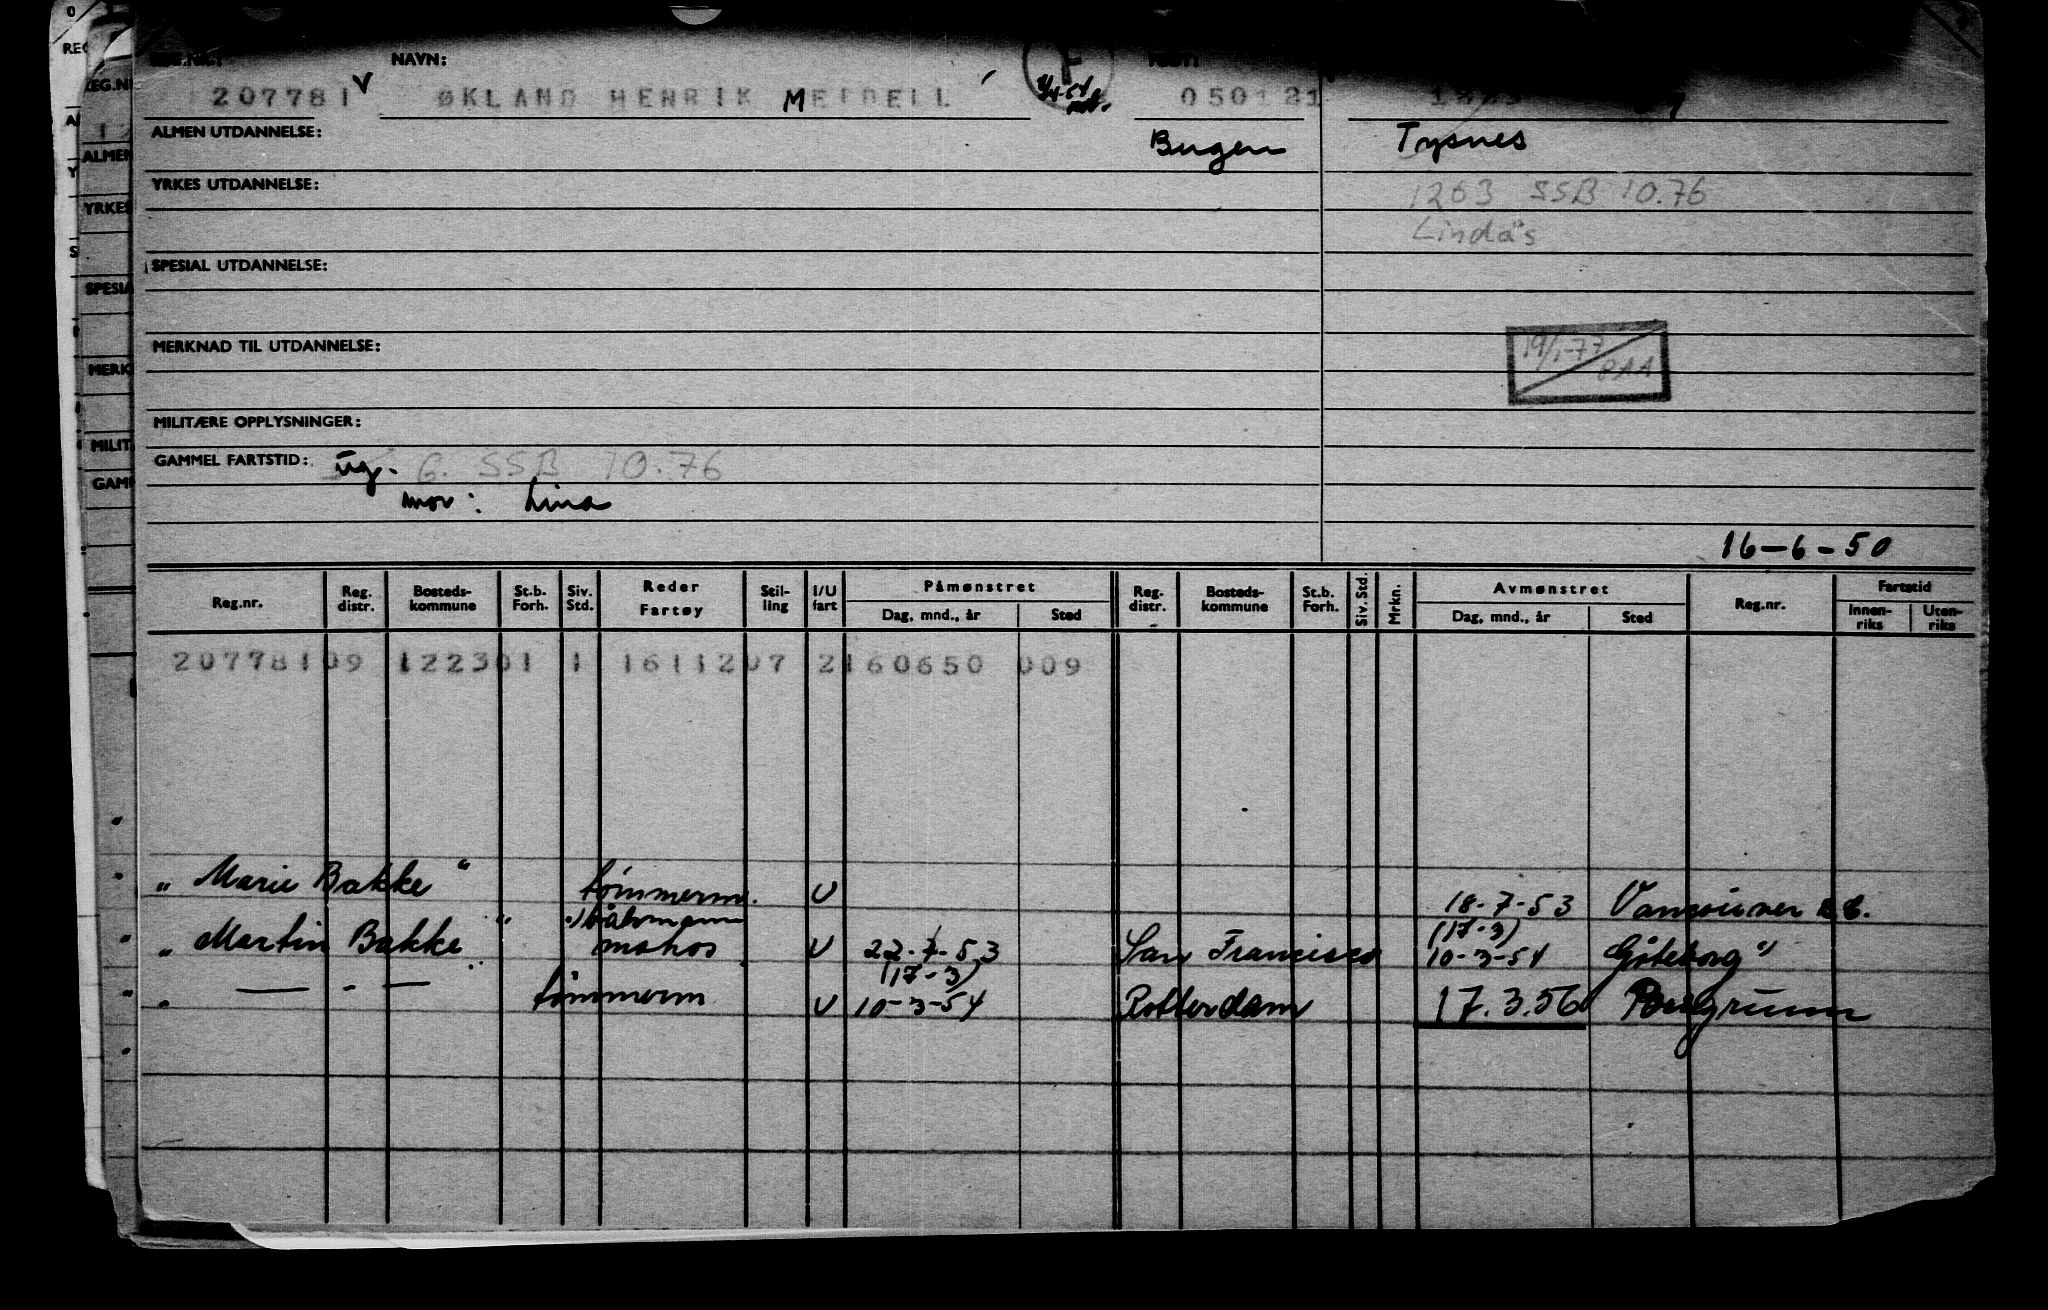 NAVN:
207781 V ØKLAND HENRIK MEIDELL 050121
ALMEN UTDANNELSE: Bugen Tysnes
YRKES UTDANNELSE: 1263 SSB 10.76
Lindås
SPESIAL UTDANNELSE:
MERKNAD TIL UTDANNELSE: 19/1-77
MILITÆRE OPPLYSNINGER:
GAMMEL FARTSTID: ug. G. SSB 10.76
mor: Lina
16-6-50
Reg.nr. Reg. distr. Bosteds-kommune St.b. Forh. Siv. Std. Reder Fartøy Stil-ling I/U fart Påmønstret Dag, mnd., år Sted Reg. distr. Bosteds-kommune St.b. Forh. Siv. Std. Mrkn. Avmønstret Dag, mnd., år Sted Reg.nr. Fartstid Innen-riks Uten-riks
20778109 122301 1 1611207 2160650 009
" Marie Bakke " tömmerm. U 18-7-53 Vancouver B.C.
båtsmann (17-3)
" Martin Bakke " matros U 22-7-53 San Francisco 10-3-54 Göteborg "
(17-3)
" — - — tömmerm U 10-3-54 Rotterdam 17.3.56 Porsgrunn